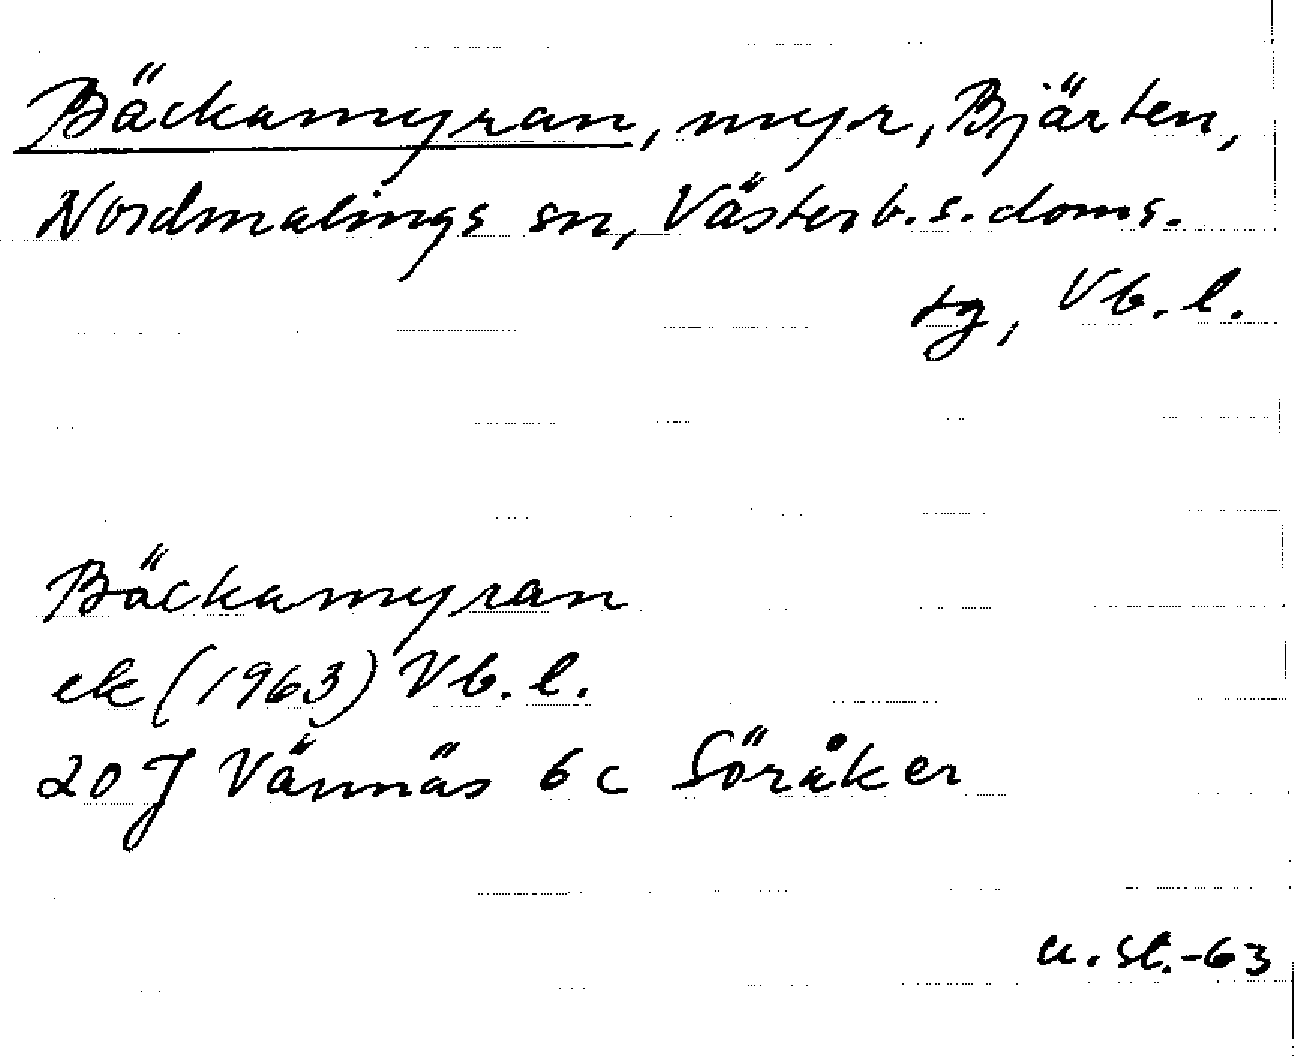 Bäckamyran, myr, Bjärten,
Nordmalings sn, Västerb. s. doms.
tg, Vb. l.
Bäckamyran
ek (1963) Vb. l.
20 J Vännäs 6 c Söråker
u. st. -63